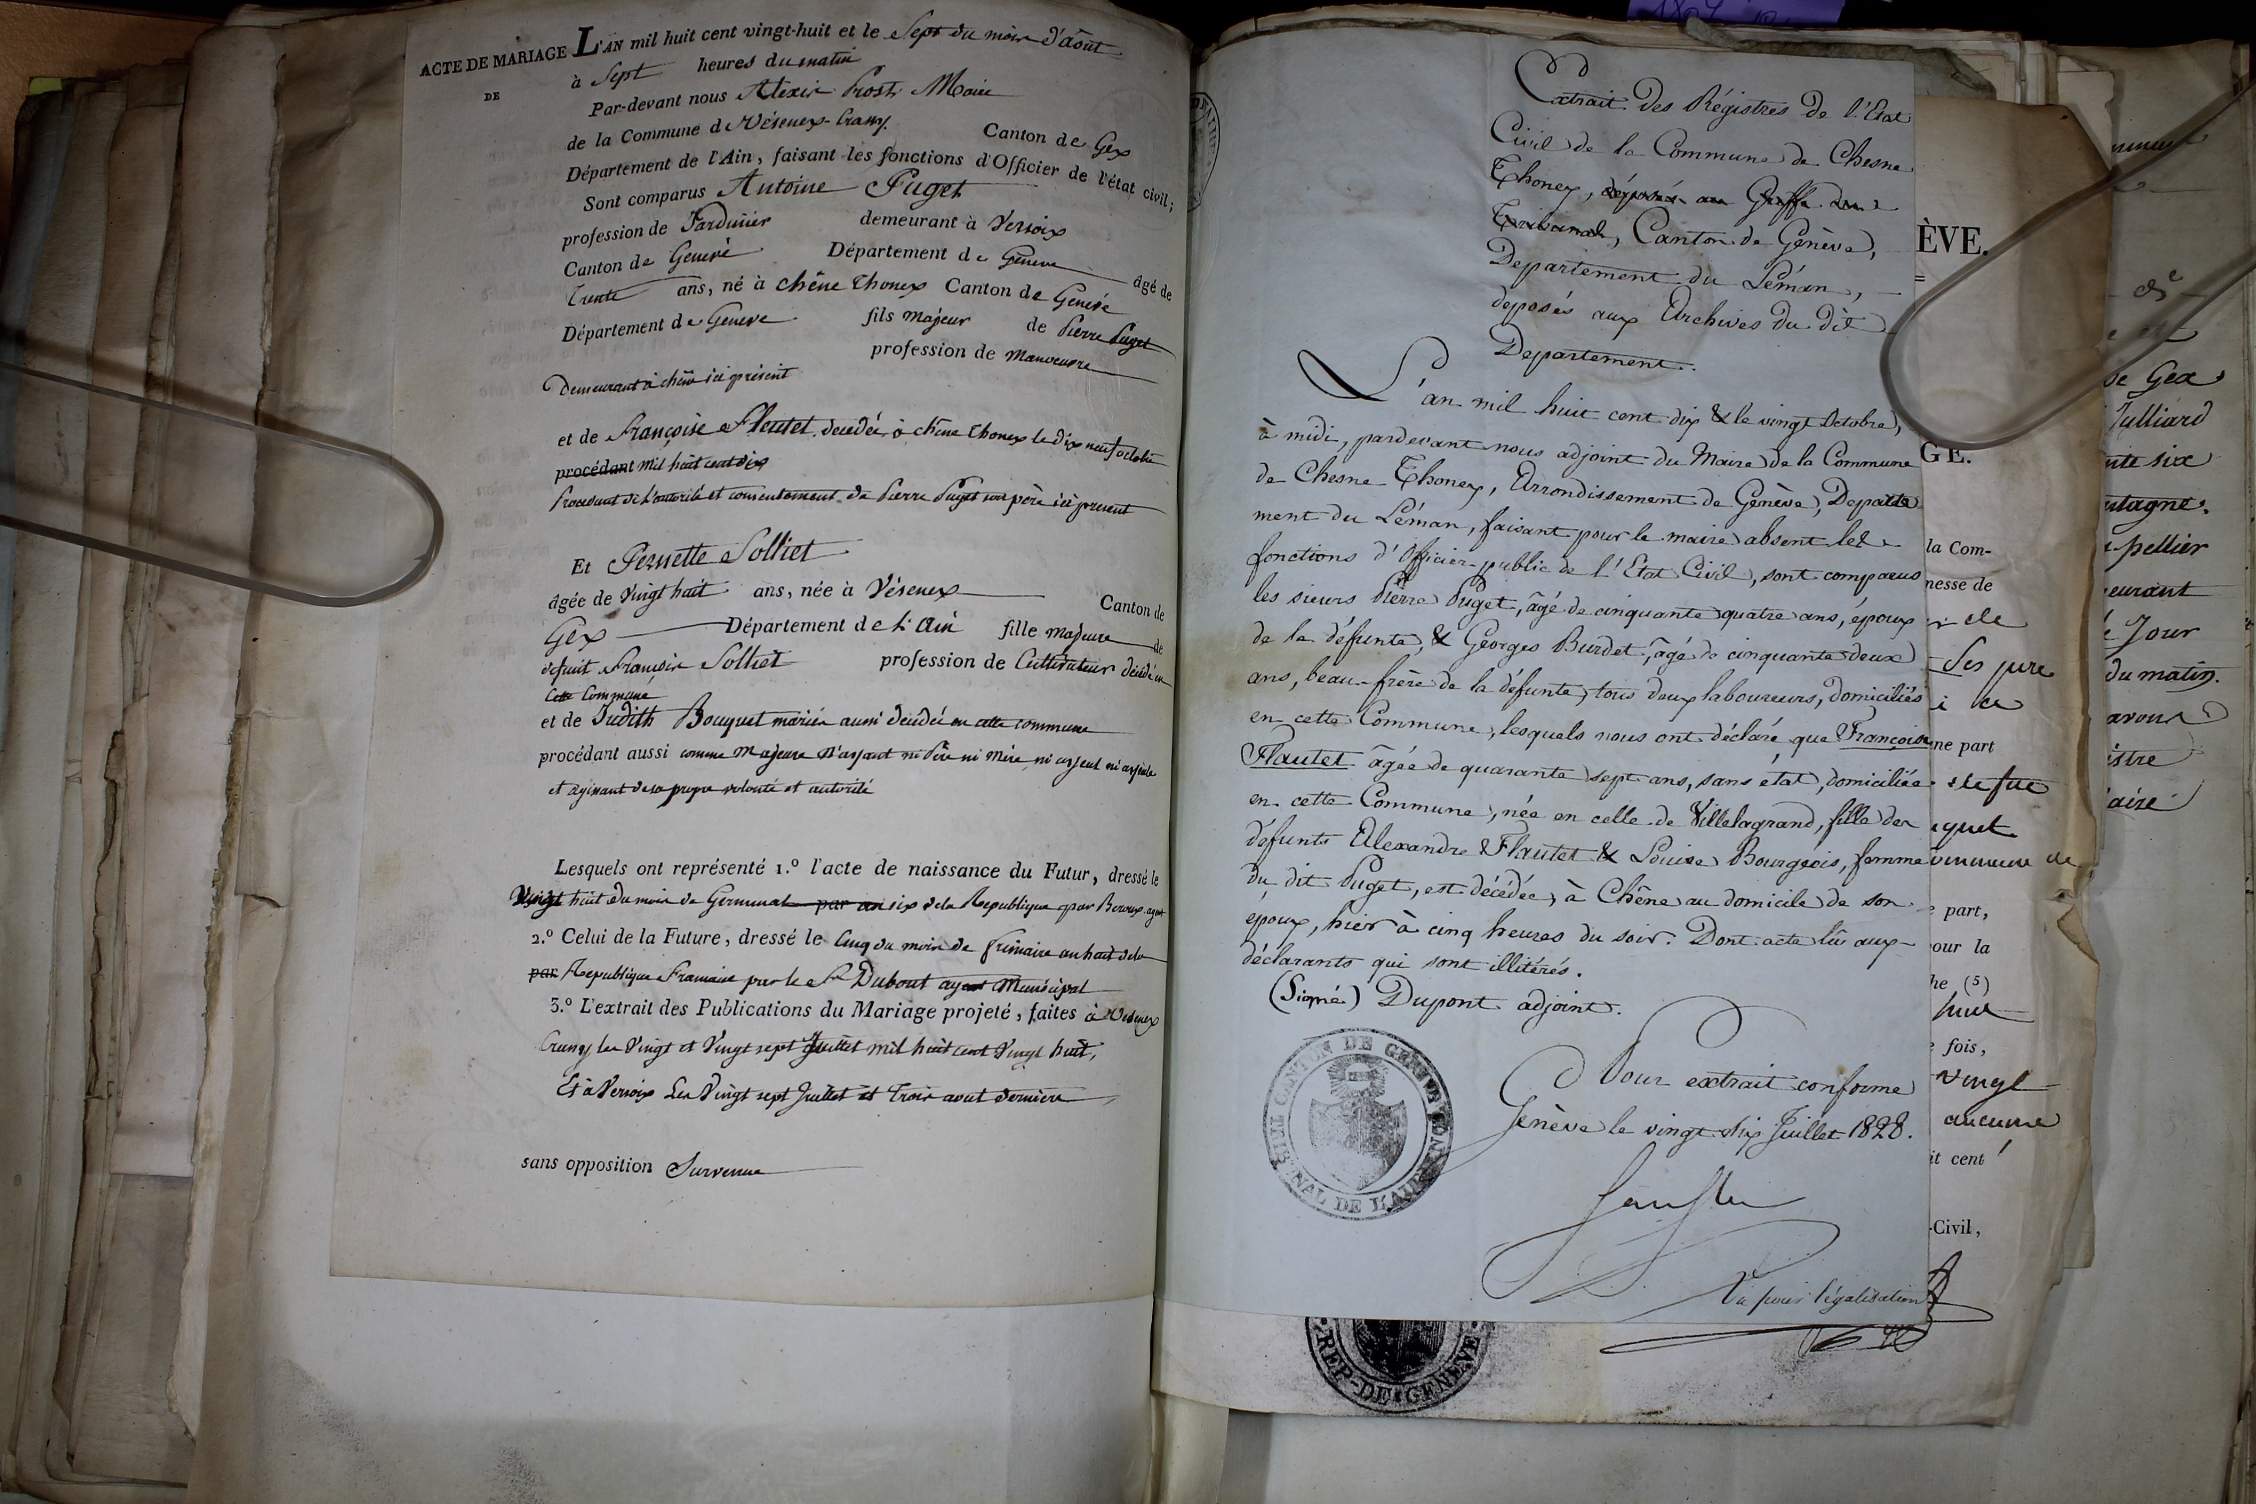 ACTE DE MARIAGE
DE
L'AN mil huit cent vingt-huit et le Sept du mois d'août
à Sept heures du matin
Par-devant nous Alexis Prost Maire
de la Commune de Véseney-Crassy Canton de Gex
Département de l'Ain, faisant les fonctions d'Officier de l'état civil;
Sont comparus Antoine Puget
profession de Jardinier demeurant à Versoix
Canton de Genève Département de Geneve âgé de
trente ans, né à chêne Thonex Canton de Genève
Département de Geneve fils majeur de Pierre Puget
profession de Manoeuvre
Demeurant à chêne ici présent
et de Françoise Fleutet decedée à chêne thonex le dix neuf octobre
procédant mil huit cent dix
Procedant de l'autorité et consentement de Pierre Puget son père ici present
Et Pernette Solliet
âgée de Vingt huit ans, née à Vésenex Canton de
Gex Département de L'Ain fille majeure de
defunt François Solliet profession de Cultivateur décédé en
Cette Commune
et de Judith Bouquet mariée aussi décédée en cette commune
procédant aussi comme Majeure N'ayant ni Père ni Mère ni ayeul ni ayeule
et agissant de sa propre volonté et autorité
Lesquels ont représenté 1.º l'acte de naissance du Futur, dressé le
Vingt huit du mois de Germinal par an six de la Republique par agent
2.º Celui de la Future, dressé le Cinq du mois de frimaire an huit de la
par Republique Francaise par le Sr Dubout agent Municipal
3.º L'extrait des Publications du Mariage projeté, faites à Vesenex
Crassy les Vingt et Vingt sept Juillet mil huit cent Vingt huit,
Et à Versoix Les Vingt sept Juillet et trois aout dernière
sans opposition Survenue
Extrait des Régistres de l'Etat
Civil de la Commune de Chesne
Thonex, déposés au Greffe du
Tribunal, Canton de Genève,
Departement du Léman,
déposés aux Archives du dit
Departement.
L'an mil huit cent dix & le vingt Octobre,
à midi, pardevant nous adjoint du Maire de la Commune
de Chesne Thonex, Arrondissement de Genève, Departe
ment du Léman, faisant pour le maire absent les
fonctions d'Officier public de l'Etat Civil, sont comparus
les sieurs Pierre Puget, âgé de cinquante quatre ans, époux
de la défunte, & Georges Burdet, âgé de cinquante deux
ans, beau-frère de la défunte, tous deux laboureurs, domiciliés
en cette Commune, lesquels nous ont déclaré que Françoise
Flautet âgée de quarante sept ans, sans état, domiciliée
en cette Commune, née en celle de Villelagrand, fille des
défunts Alexandre Flautet & Louise Bourgeois, femme
du dit Puget, est décédée à Chêne au domicile de son
époux, hier à cinq heures du soir. Dont acte lû aux
déclarants qui sont illitérés.
(Signé) Dupont adjoint.
Pour extrait conforme
Genève le vingt six Juillet 1828.
Vu pour légalisation
REP. DE GENEVE
ÈVE.
GE.
la Com-
nesse de
de
Ses pere
ce
ne part
part,
our la
he (5)
huit
fois,
vingt
aucune
it cent
-Civil,
de Gex
Julliard
nte six
ntagne.
pellier
eurant
Jour
du matin.
istre
aire